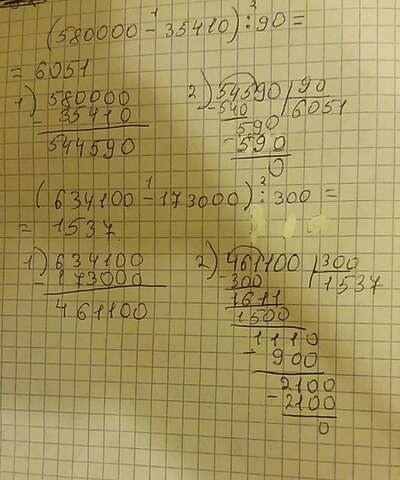 1 2
(580000 - 35410) : 90 =
= 6051
1) 580000
- 35410
544590
2) 54590 | 90
- 540 6051
590
- 590
0
1 2
(634100 - 173000) : 300 =
= 1537
1) 634100
- 173000
461100
2) 461100 | 300
- 300 1537
1611
1500
1110
- 900
2100
- 2100
0